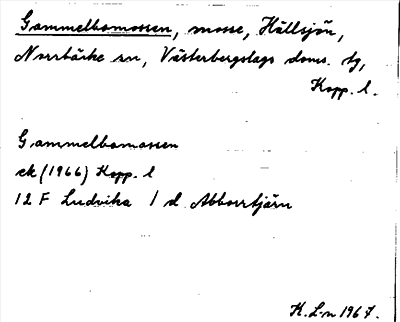 Gammelbomossen, mosse, Hällsjön,
Norrbärke sn, Västerbergslags doms. tg,
Kopp. l.
Gammelbomossen
ek (1966) Kopp. l
12 F Ludvika 1 d Abborrtjärn
K. L-n 1967.